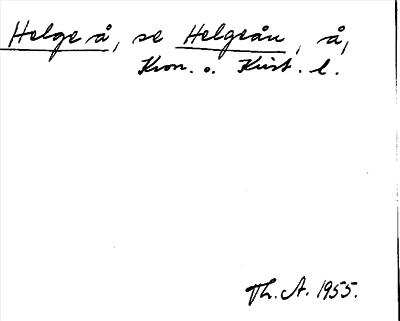 Helge å, se Helgeån, å,
Kron. o. Krist. l.
Th. A. 1955.